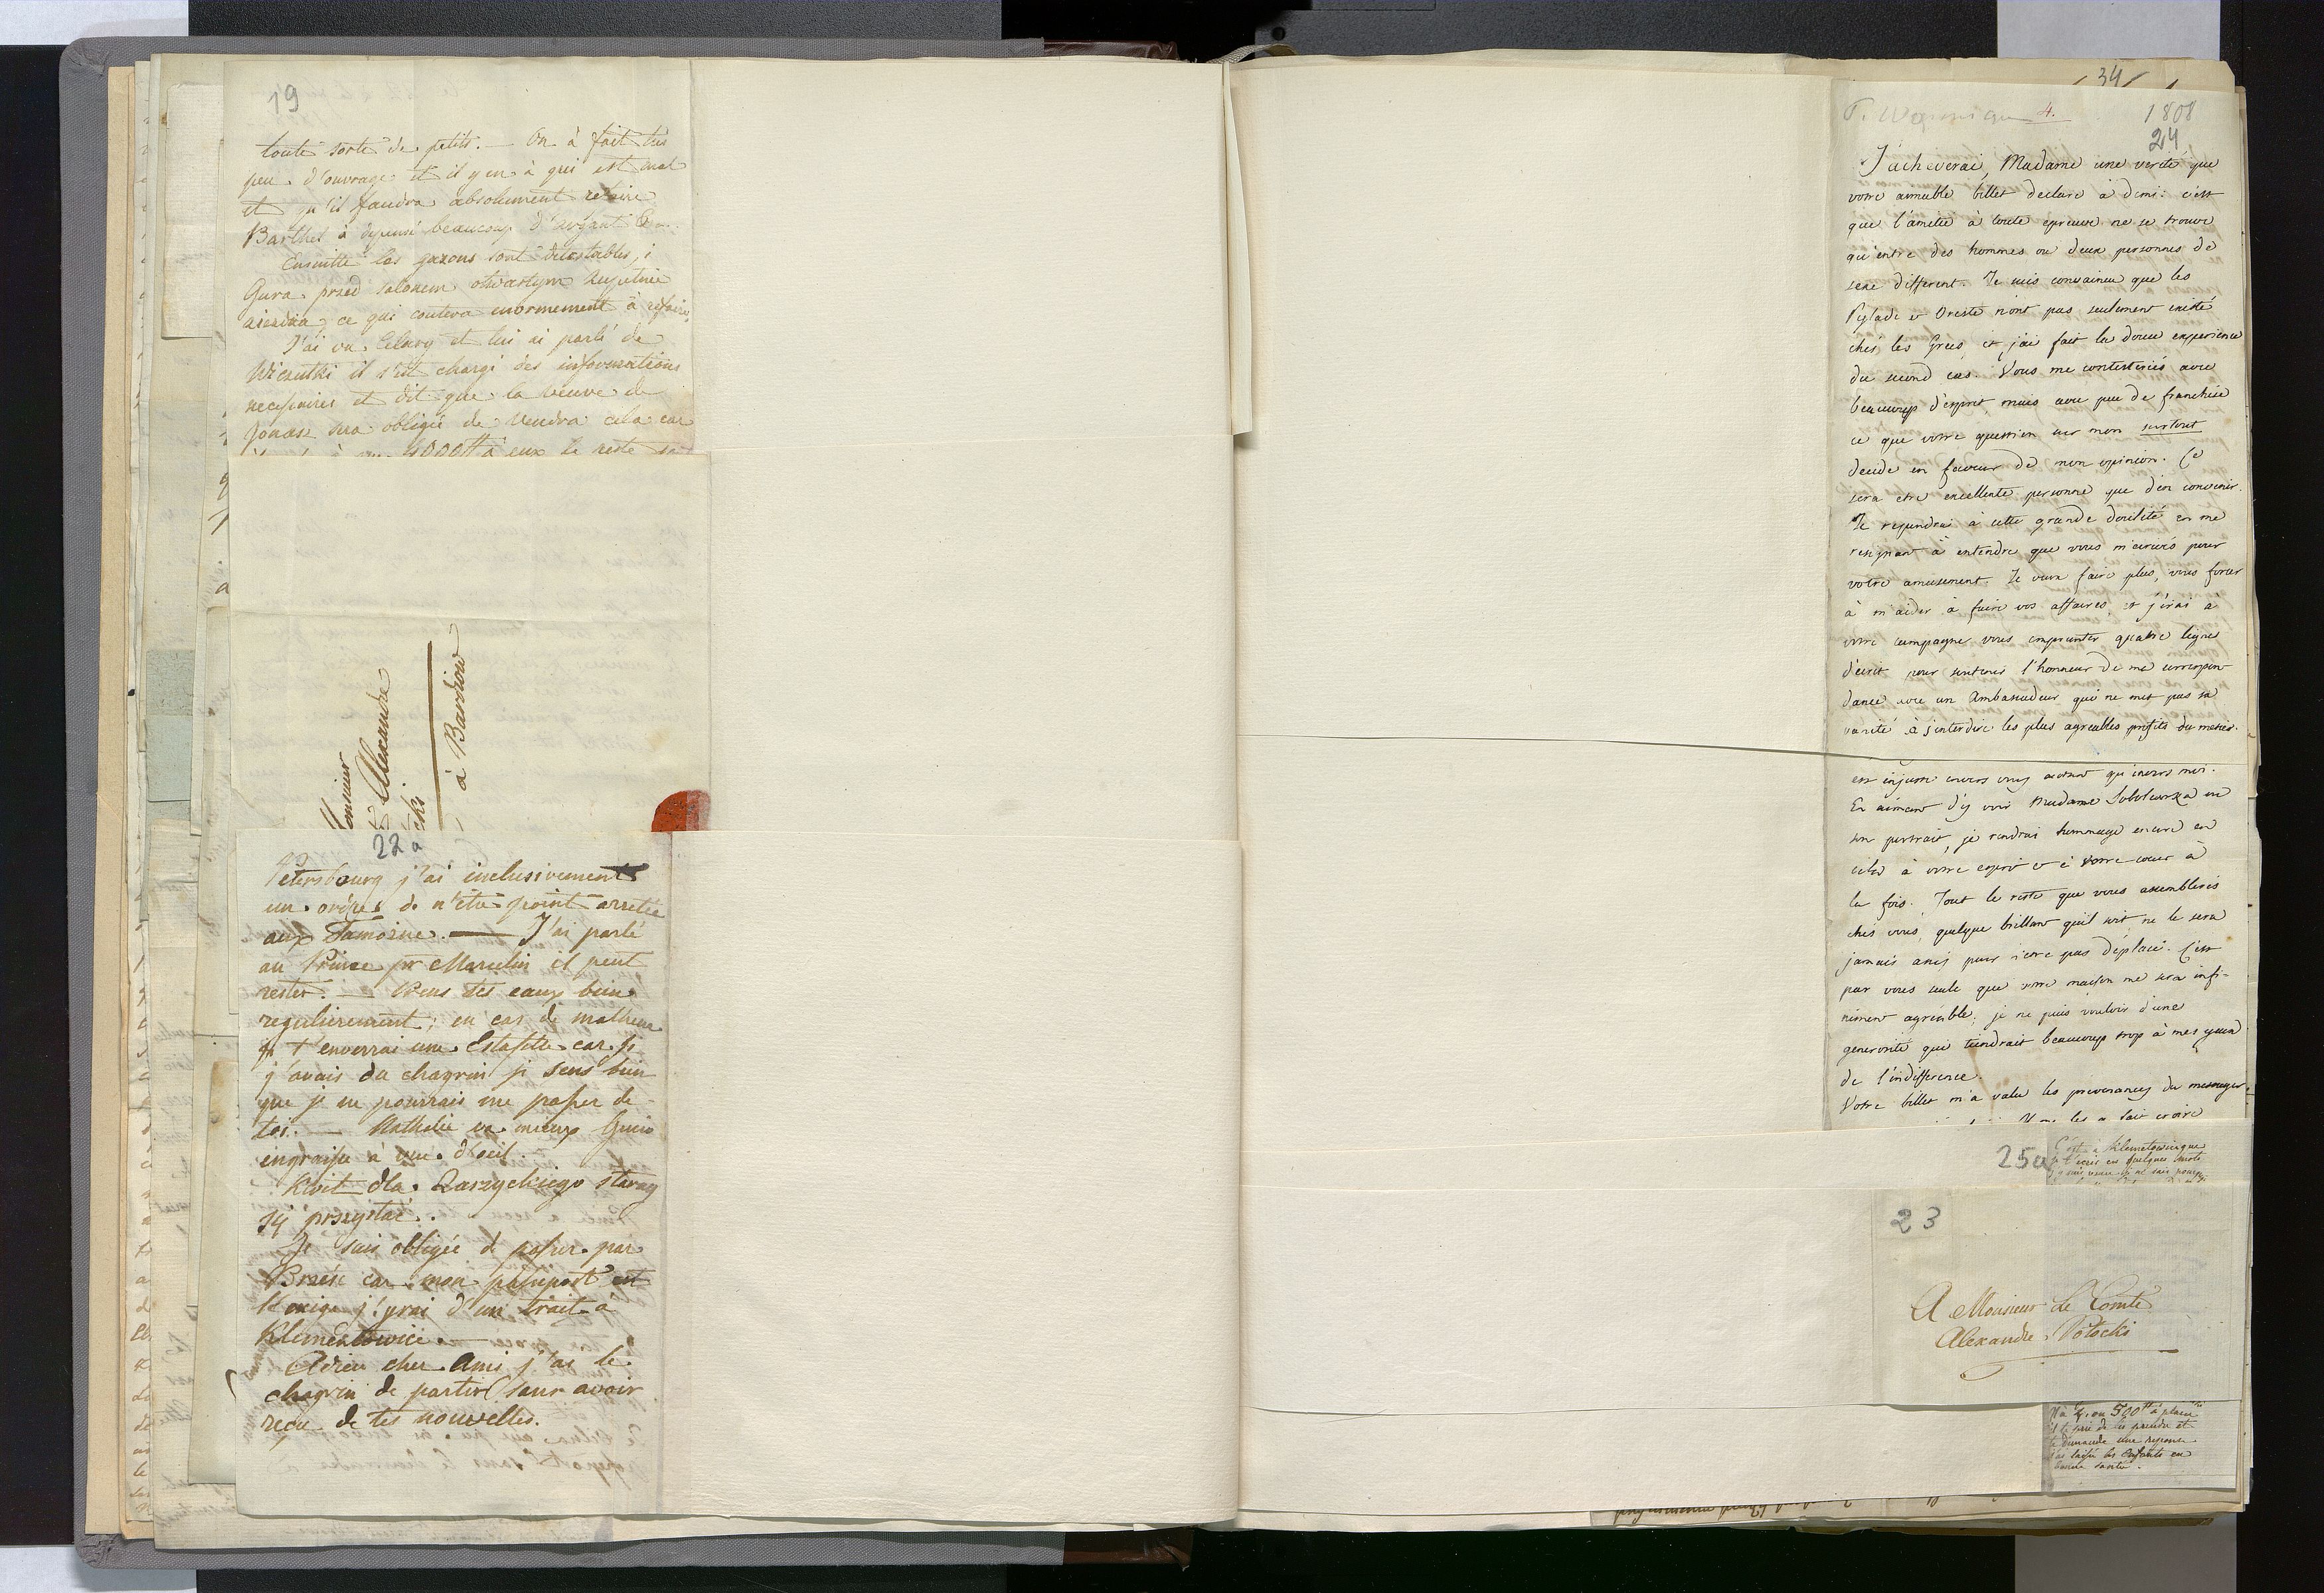 19
toute sorte de petits. — On à fait très
peu d'ouvrage et il y en à qui est mal
et qu'il faudra absolument refaire
Barthel à depensé beaucoup d'argent
Ensuitte les gazons sont detestables, i
Gura przed Salonem otwartym zupełnie
ce qui coutera enormement à refaire,
J'ai vu et lui ai parlé de
il s'est chargé des informations
necessaires et dit que la veuve de
sera obligée de vendra cela car
à eux le reste
Monsieur
Alexandre
cki
à Bardiow
22a
Petersbourg j'ai inclusivement
un ordre de n'être point arretée
aux Tamozne. — J'ai parlé
au Prince pr Marcelin il peut
rester. — Prens tes eaux bien
regulierement; en cas de malheur
je t'enverrai une Estafette car si
j'avais du chagrin je sens bien
que je ne pourrais me passer de
toi. — Nathalie va mieux Gucio
engraisse à vue d'oeil.
Kwit dla Zarzyckiego staray
się przysłać.
Je suis obligée de passer par
Brześć car mon passeport est
j'yrai d'un trait à
Klementowice. —
Adieu cher Ami j'ai le
chagrin de partir sans avoir
reçu de tes nouvelles.
34
4.
1808
24
J'acheverai, Madame une verité que
votre aimable billet declare à demi: c'est
que l'amitié à toute epreuve ne se trouve
qu'entre des hommes ou deux personnes de
sexe different. Je suis convaincu que les
Pylade et Oreste n'ont pas seulement existé
chés les Grecs, et j'ai fait la douce experience
du second cas. Vous me contesteriés avec
beaucoup d'esprit, mais avec peu de franchise
ce que votre question sur mon surtout
decide en faveur de mon opinion. Ce
sera etre excellente personne que d'en convenir.
Je repondrai à cette grande docilité en me
resignant à entendre que vous m'ecrivés pour
votre amusement. Je veux faire plus, vous forcer
à m'aider à faire vos affaires, et j'irai à
votre campagne vous emprunter quatre ligne
d'ecrit pour soutenir l'honneur de ma correspon
dance avec un Ambassadeur qui ne met pas sa
vanité à s'interdire les plus agreables profits du metier.
est injuste envers vous autant qu'envers moi.
En aimant d'y voir Madame Sobolewska ou
son portrait, je rendrai hommage encore en
cela à votre esprit et à votre coeur à
la fois. Tout le reste que vous assemblerés
chés vous, quelque brillant qu'il soit, ne le sera
jamais assés pour n'etre pas déplacé. C'est
par vous seule que votre maison me sera infi-
niment agreable; je ne puis vouloir d'une
generosité qui tiendrait beaucoup trop à mes yeux
de l'indifference.
Votre billet m'a valu les prevenances du messager.
25a
C'est à Klementowice que
je t'ecris en quelques mots
23
A Monsieur Le Comte
Alexandre Potocki
à placer
il te prie de les prendre et
te demande une reponse
J'ai laissé les Enfants en
bonne santé.